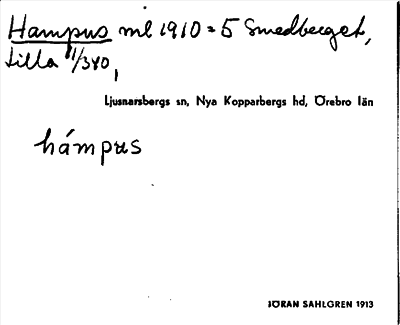 Hampus ml 1910 = 5 Smedberget,
lilla 1/340,
Ljusnarsbergs sn, Nya Kopparbergs hd, Örebro län
hámpus
JÖRAN SAHLGREN 1913